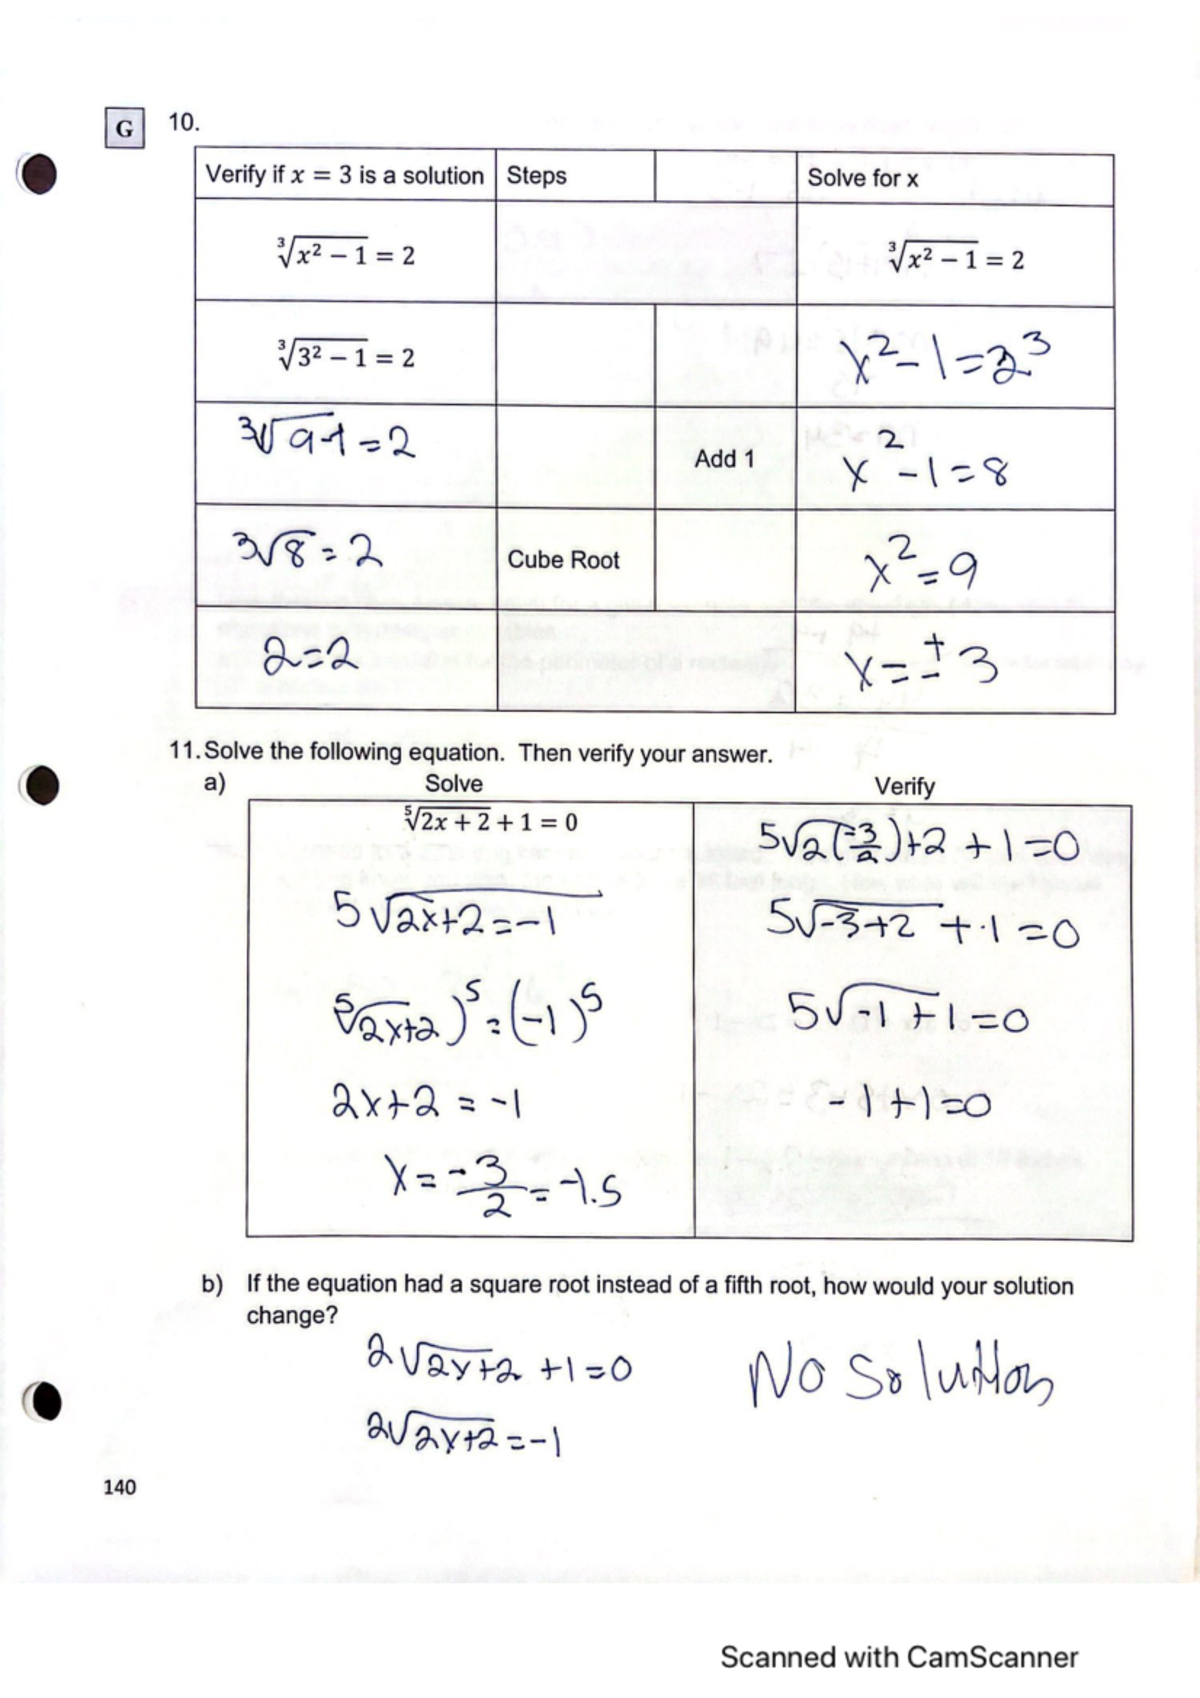 G 10.
Verify if x = 3 is a solution Steps Solve for x
∛(x² – 1) = 2 ∛(x² – 1) = 2
∛(3² – 1) = 2 x²-1=2³
³√9-1=2 Add 1 x²-1=8
³√8=2 Cube Root x²=9
2=2 x=±3
11. Solve the following equation. Then verify your answer.
a) Solve Verify
⁵√(2x + 2) + 1 = 0 5√2(-3/2)+2 + 1=0
5√2x+2=-1 5√-3+2 +1=0
⁵√2x+2)⁵=(-1)⁵ 5√-1+1=0
2x+2=-1 -1+1=0
x=-3/2=-1.5
b) If the equation had a square root instead of a fifth root, how would your solution
change?
2√2x+2 +1=0 No Solution
2√2x+2=-1
140
Scanned with CamScanner